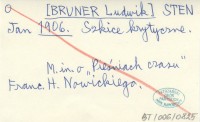 O [BRUNER Ludwik] STEN
Jan 1906. Szkice krytyczne.
M.in. o „Pieśniach czasu"
Franc. H. Nowickiego.
BJ/006/0825